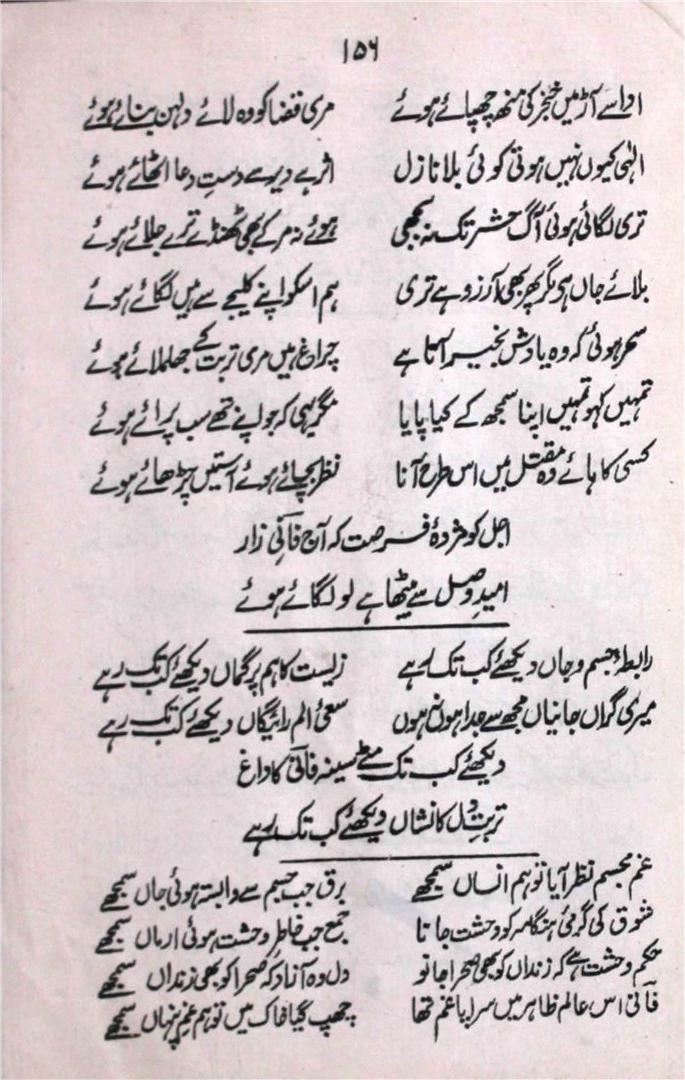 ۱۵۶
ادا سے آڑ میں خنجر کی منھ چھپائے ہوئے مری قضا کو وہ لائے دلہن بنائے ہوئے
الٰہی کیوں نہیں ہوتی کوئی بلا نازل اثر ہے دیر سے دستِ دعا اٹھائے ہوئے
تری لگائی ہوئی آگ حشر تک نہ بجھی ہوئے نہ مر کے بھی ٹھنڈے ترے جلائے ہوئے
بلائے جاں ہی مگر پھر بھی آرزو ہے تری ہم اسکو اپنے کلیجے سے ہیں لگائے ہوئے
سحر ہوئی کہ وہ یادش بخیر آتا ہے چراغ ہیں مری تربت کے جھلملائے ہوئے
تمہیں کہو تمہیں اپنا سمجھ کے کیا پایا مگر یہی کہ جو اپنے تھے سب پرائے ہوئے
کسی کا ہائے وہ مقتل میں اس طرح آنا نظر بچائے ہوئے آستیں چڑھائے ہوئے
اجل کو مژدۂ فرصت کہ آج فانیٔ زار
امیدِ وصل سے بیٹھا ہے لو لگائے ہوئے
رابطۂ جسم و جاں دیکھئے کب تک رہے زیست کا ہم پر گماں دیکھئے کب تک رہے
میری گراں جانیاں مجھ سے جدا ہوں نہ ہوں سعیٔ الم رائیگاں دیکھئے کب تک رہے
دیکھئے کب تک مٹے سینۂ فانیؔ کا داغ
تربتِ دل کا نشاں دیکھئے کب تک رہے
غم مجسم نظر آیا تو ہم انساں سمجھے برق جب جسم سے وابستہ ہوئی جاں سمجھے
شوق کی گرمیٔ ہنگامہ کو وحشت جانا جمع جب خاطرِ وحشت ہوئی ارماں سمجھے
حکم وحشت ہے کہ زنداں کو بھی صحرا جانو دل وہ آزاد کہ صحرا کو بھی زنداں سمجھے
فانی اس عالم ظاہر میں سراپا غم تھا چھپ گیا خاک میں تو ہم غمِ پنہاں سمجھے